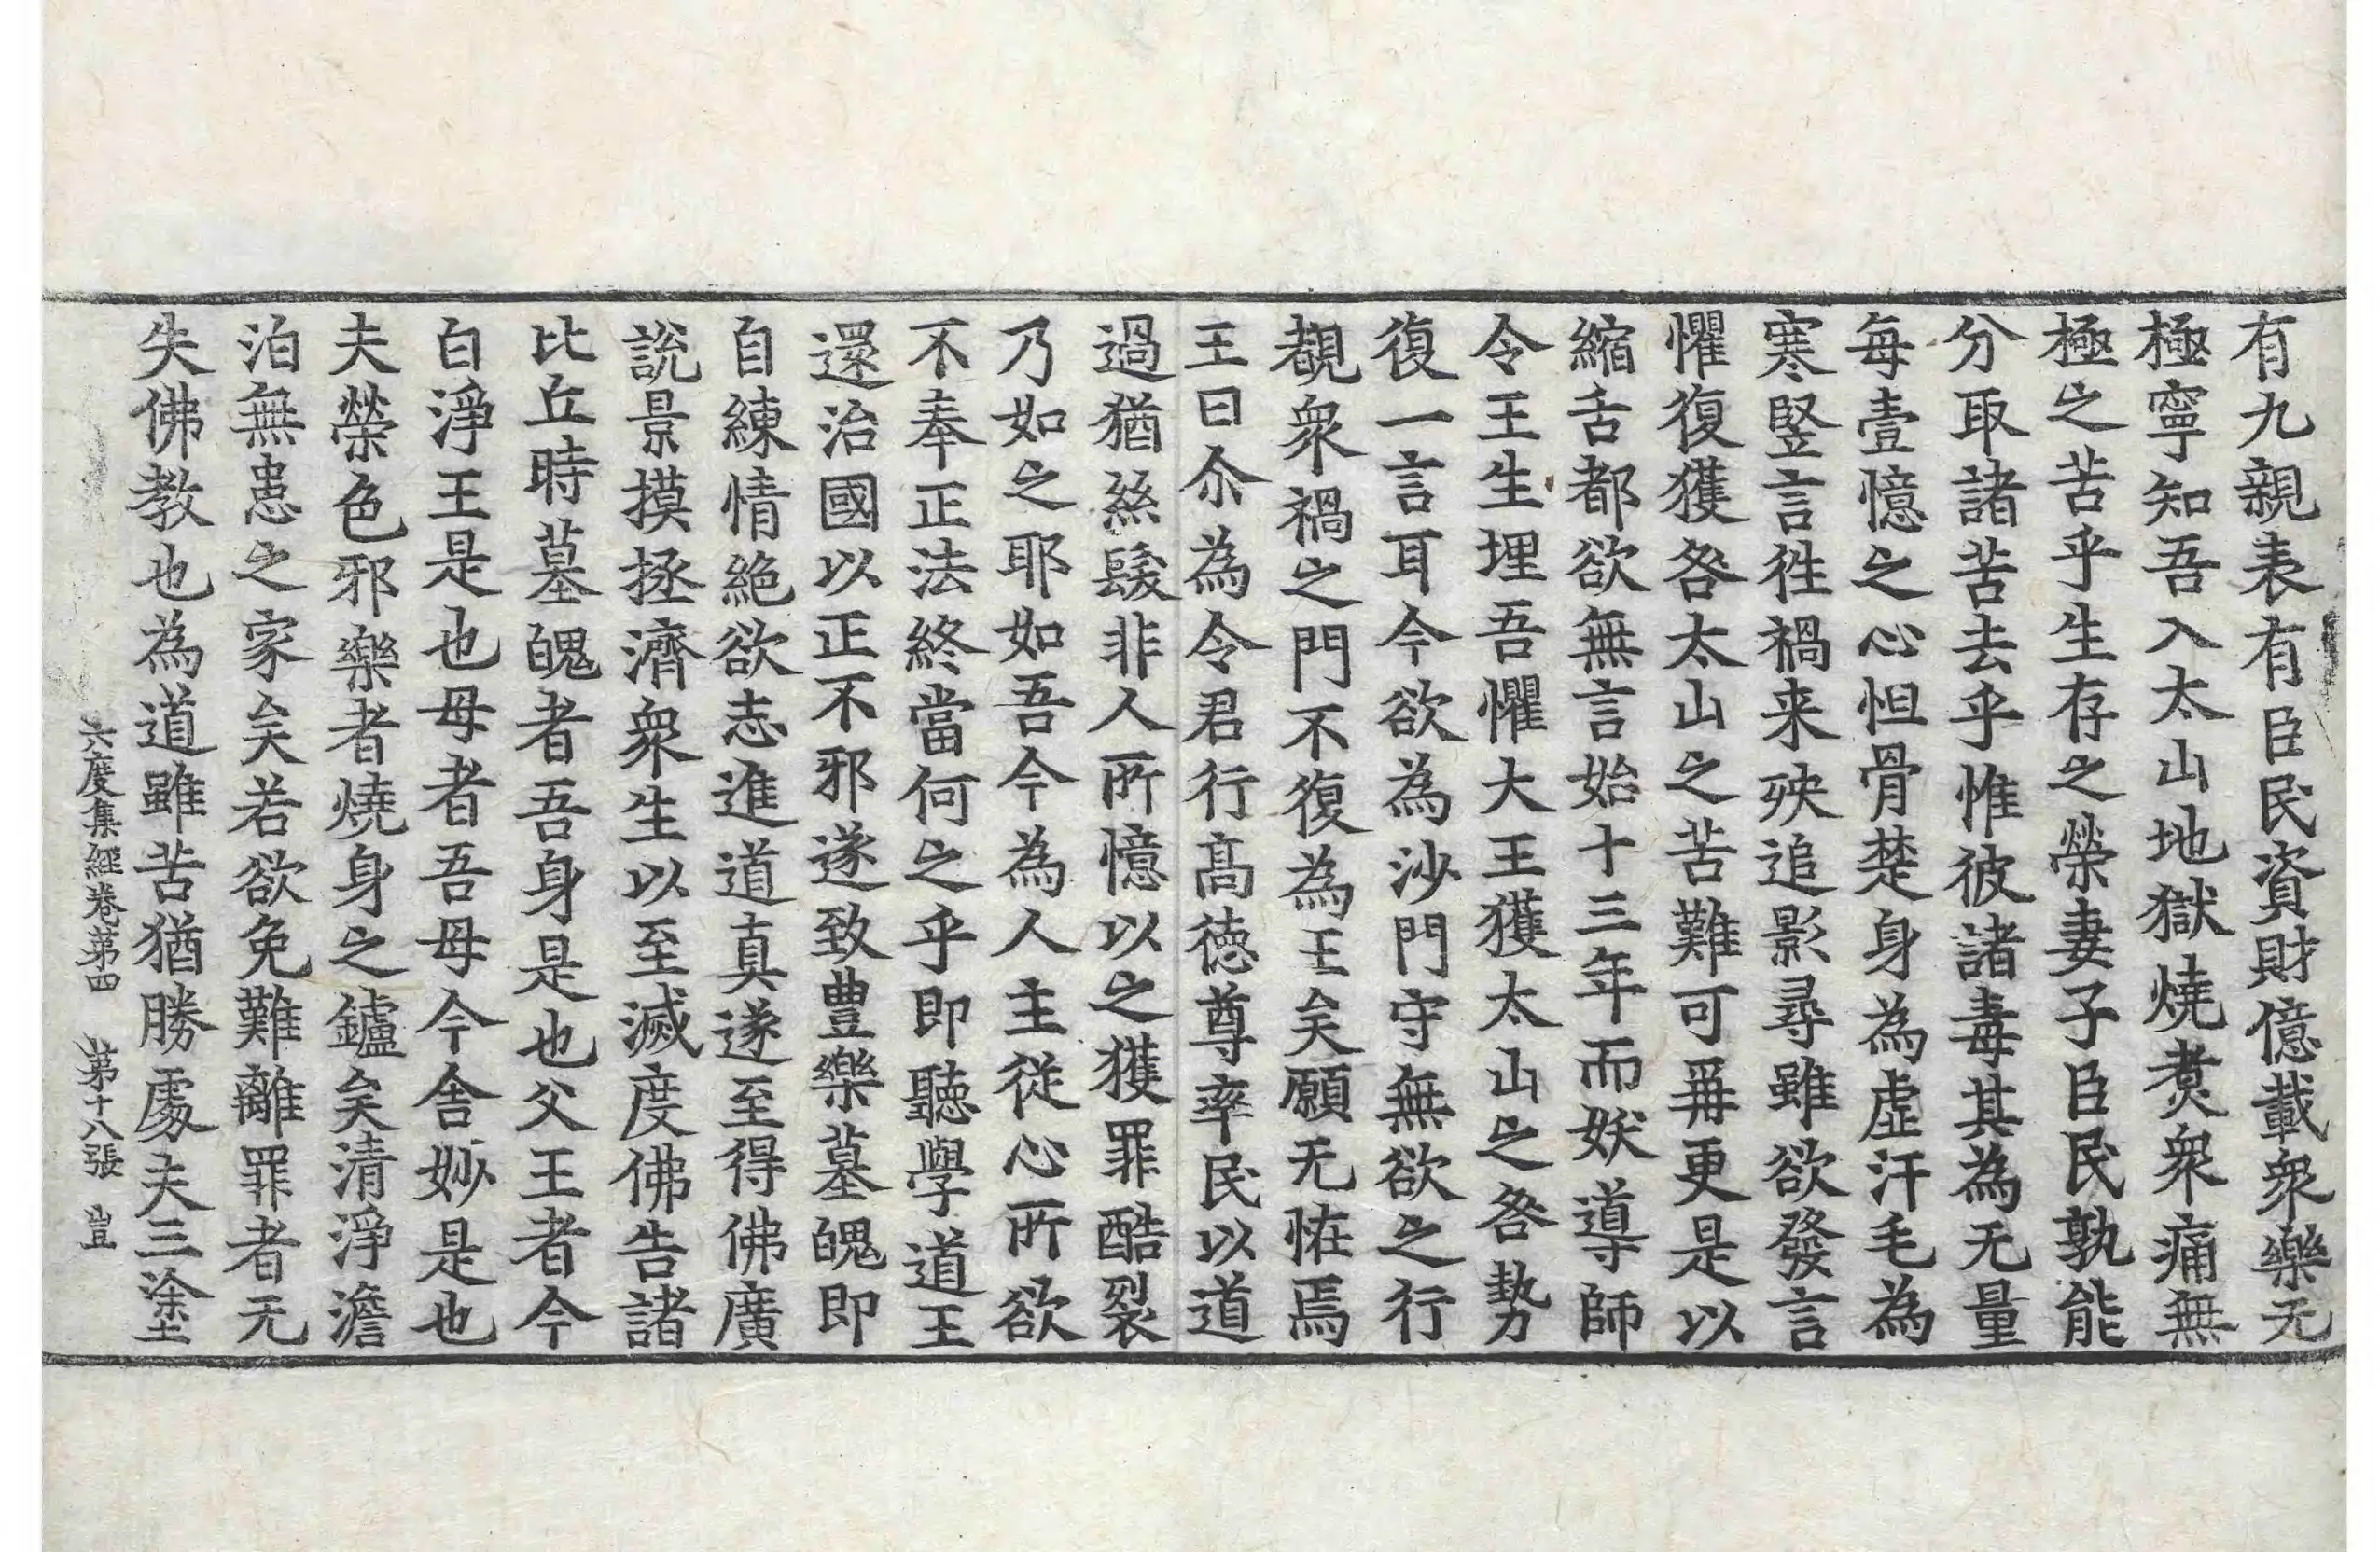 有九親表有臣民資財億載衆樂无
極寧知吾入太山地獄燒煑衆痛無
極之苦乎生存之榮妻子臣民孰能
分取諸苦去乎惟彼諸毒其為无量
每壹憶之心怛骨楚身為虛汗毛為
寒竪言徃禍来殃追影尋雖欲發言
懼復獲咎太山之苦難可再更是以
縮舌都欲無言始十三年而妖導師
令王生埋吾懼大王獲太山之咎勢
復一言耳今欲為沙門守無欲之行
覩衆禍之門不復為王矣願无恠焉
王曰尒為令君行髙德尊率民以道
過猶絲髮非人所憶以之獲罪酷裂
乃如之耶如吾今為人主從心所欲
不奉正法終當何之乎即聽學道王
還治國以正不邪遂致豊樂墓魄即
自練情絕欲志進道真遂至得佛廣
說景摸拯濟衆生以至滅度佛告諸
比丘時墓魄者吾身是也父王者今
白淨王是也母者吾母今舍妙是也
夫榮色邪樂者燒身之鑪矣清淨澹
泊無患之家矣若欲免難離罪者无
失佛教也為道雖苦猶勝處夫三塗
六度集經卷第四 第十八張 豈